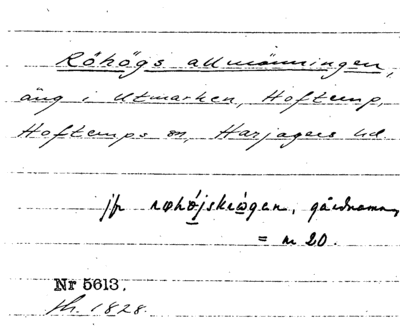 Röhögs allmänningen,
äng i Utmarken, Hofterup,
Hofterups sn, Harjagers hd.
jfr røhǿjskrǫgen, gårdnamn,
= nr 20.
Nr 5613.
sk. 1828.